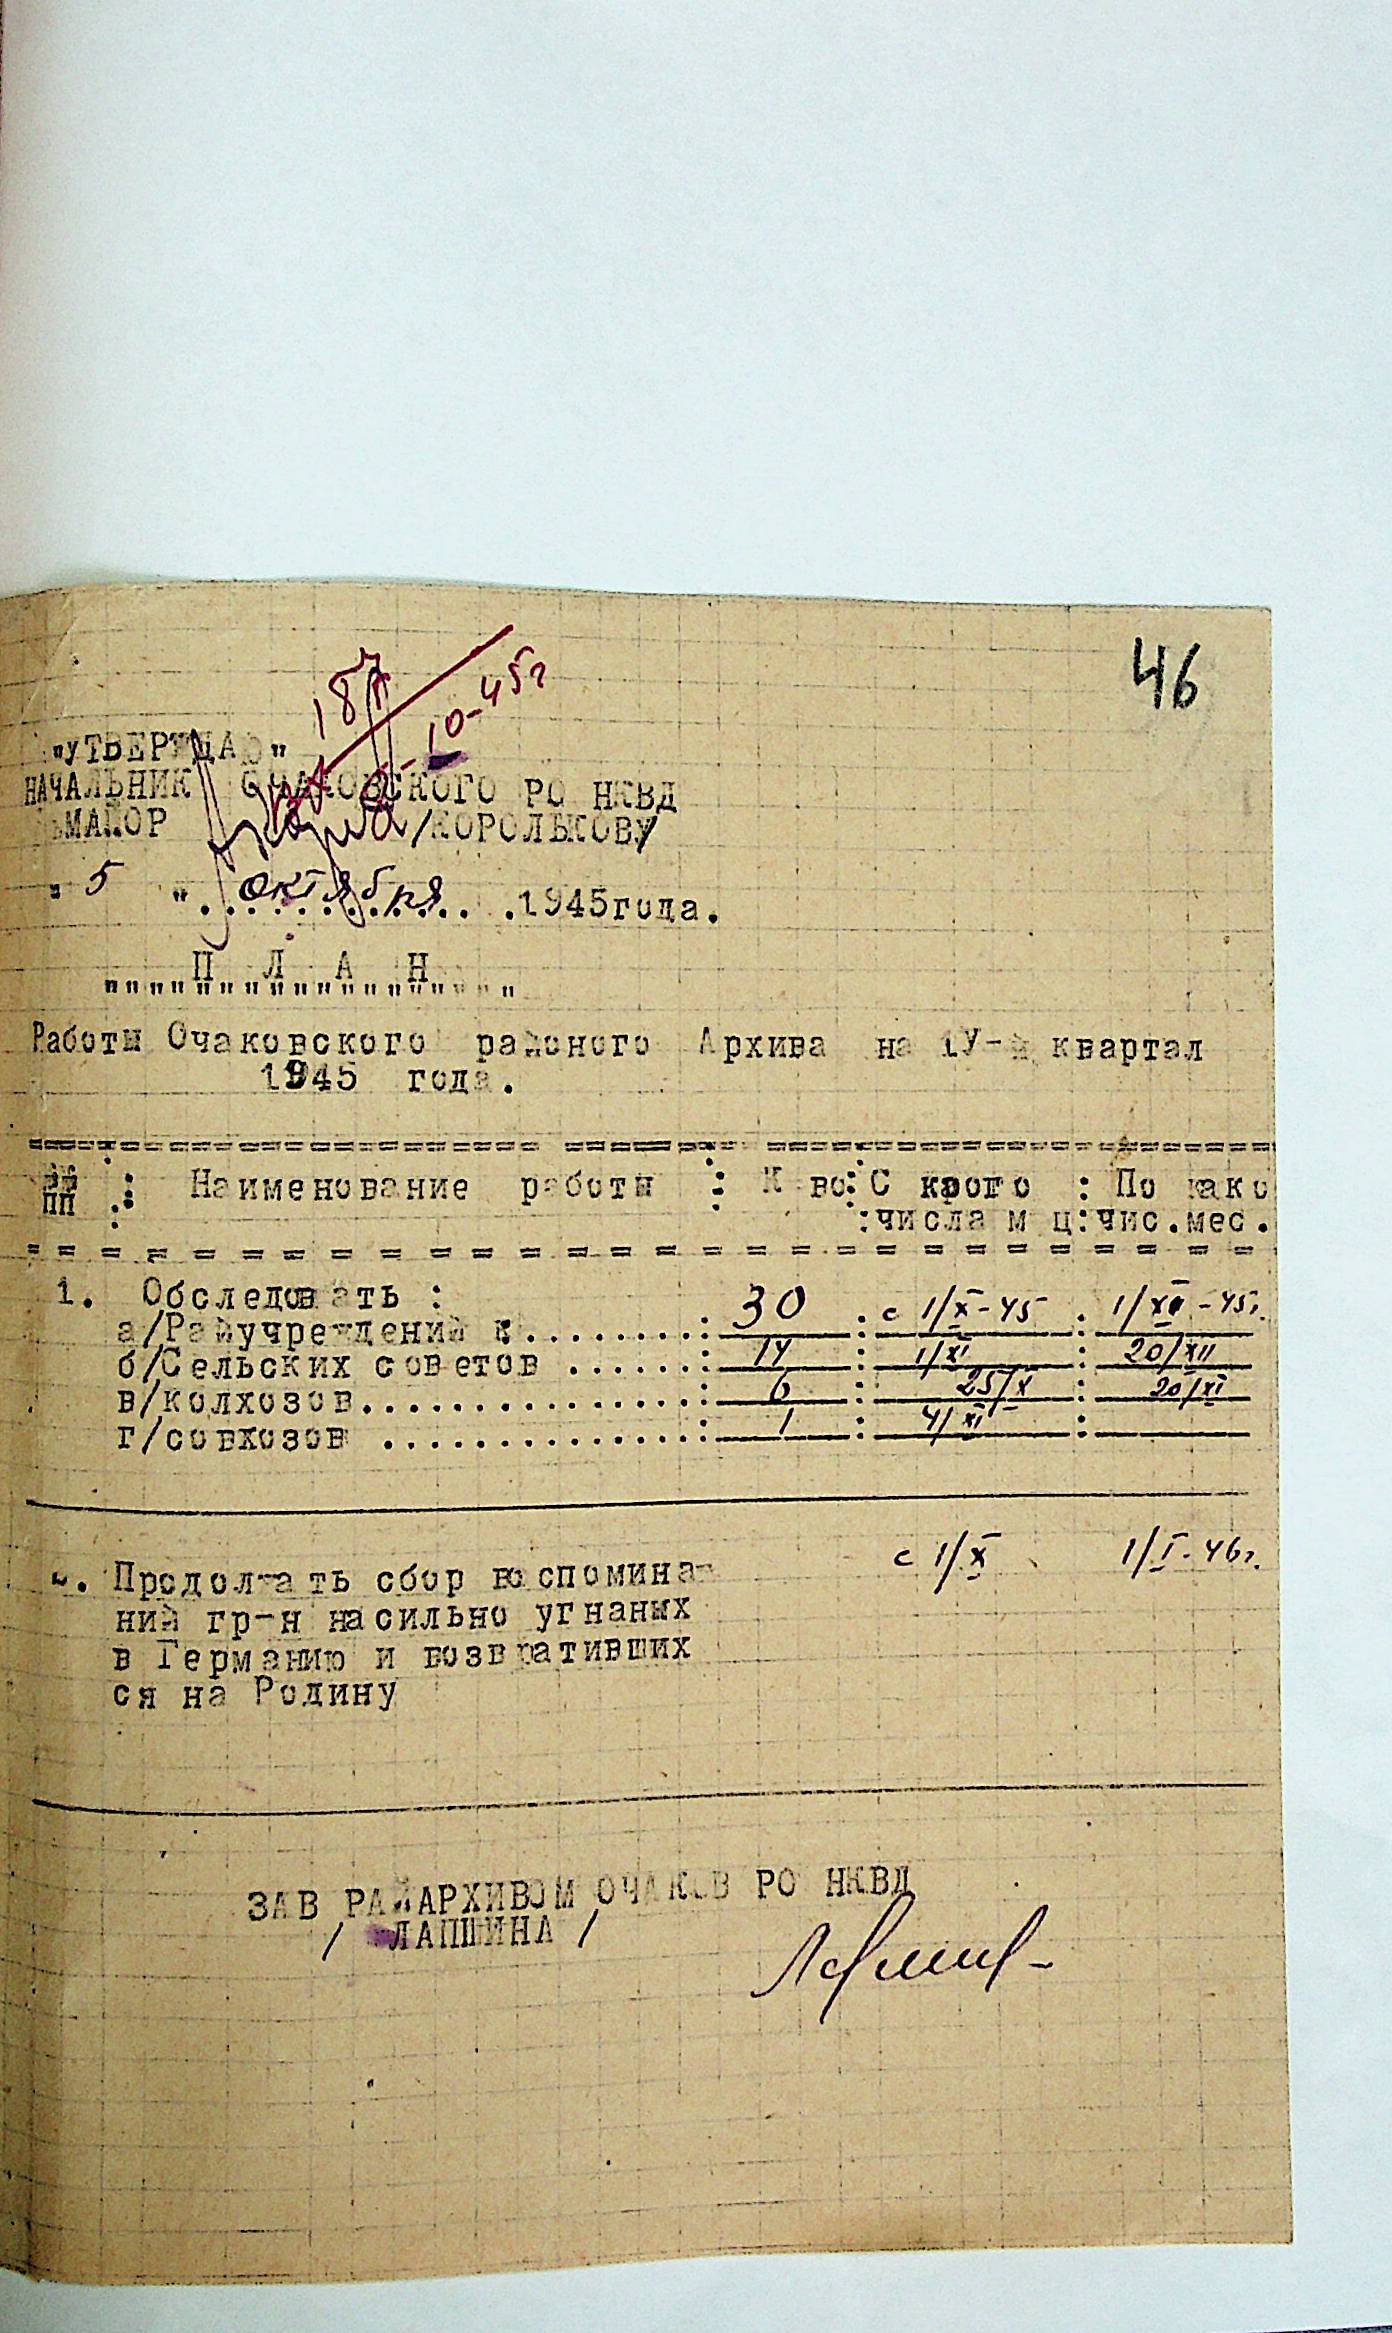 46
187
-10-45г
"УТВЕРЖДАЮ"
НАЧАЛЬНИК ОЧАКОВСКОГО РО НКВД
МАЙОР /КОРОЛЬКОВУ/
" 5 " . октября . .1945года.
П Л А Н
Работы Очаковского районого Архива на 1У-й квартал
1945 года.
№№ ПП : Наименование работы : К во: С кого : По како
:числа м ц:чис.мес.
1. Обследовать :
а/Райучреждений . . . . . . . . : 30 : с 1/X-45 : 1/XII-45г.
б/Сельских советов . . . . . . : 14 : 1/XI : 20/XII
в/колхозов. . . . . . . . . . . . . . . : 6 : 25/X : 20/XI
г/совхозов . . . . . . . . . . . . . . : 1 : 4/XI :
2. Продолжать сбор воспомина- с 1/X 1/I-46г.
ний гр-н насильно угнаных
в Германию и возвративших
ся на Родину
ЗАВ РАЙАРХИВОМ ОЧАКОВ РО НКВД
/ ЛАПШИНА /